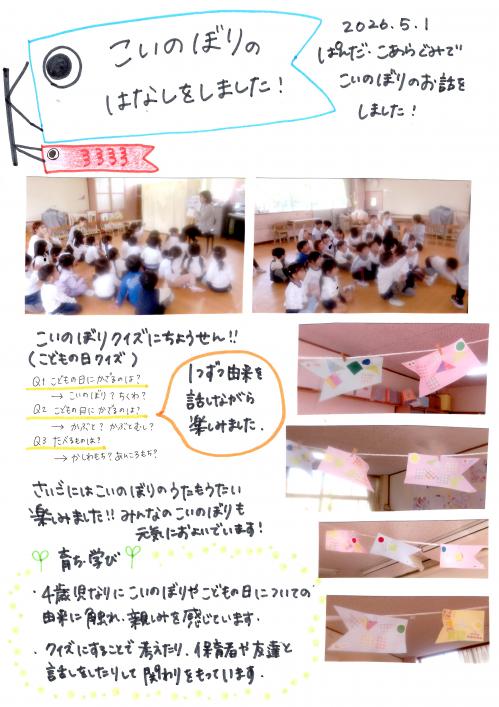 こいのぼりの
はなしをしました!
2026.5.1
ぱんだ・こあらぐみで
こいのぼりのお話を
しました!
こいのぼりクイズにちょうせん!!
(こどもの日クイズ)
Q1 こどもの日にかざるのは?
→ こいのぼり?ちくわ?
Q2 こどもの日にかざるのは?
→ かぶと?かぶとむし?
Q3 たべるものは?
→ かしわもち?あんころもち?
1つずつ由来を
話しながら
楽しみました.
さいごにはこいのぼりのうたもうたい
楽しみました!!みんなのこいのぼりも
元気におよいでいます!
育ち・学び
・4歳児なりにこいのぼりやこどもの日についての
由来に触れ、親しみを感じています.
・クイズにすることで考えたり、保育者や友達と
話しをしたりして関わりをもっています.